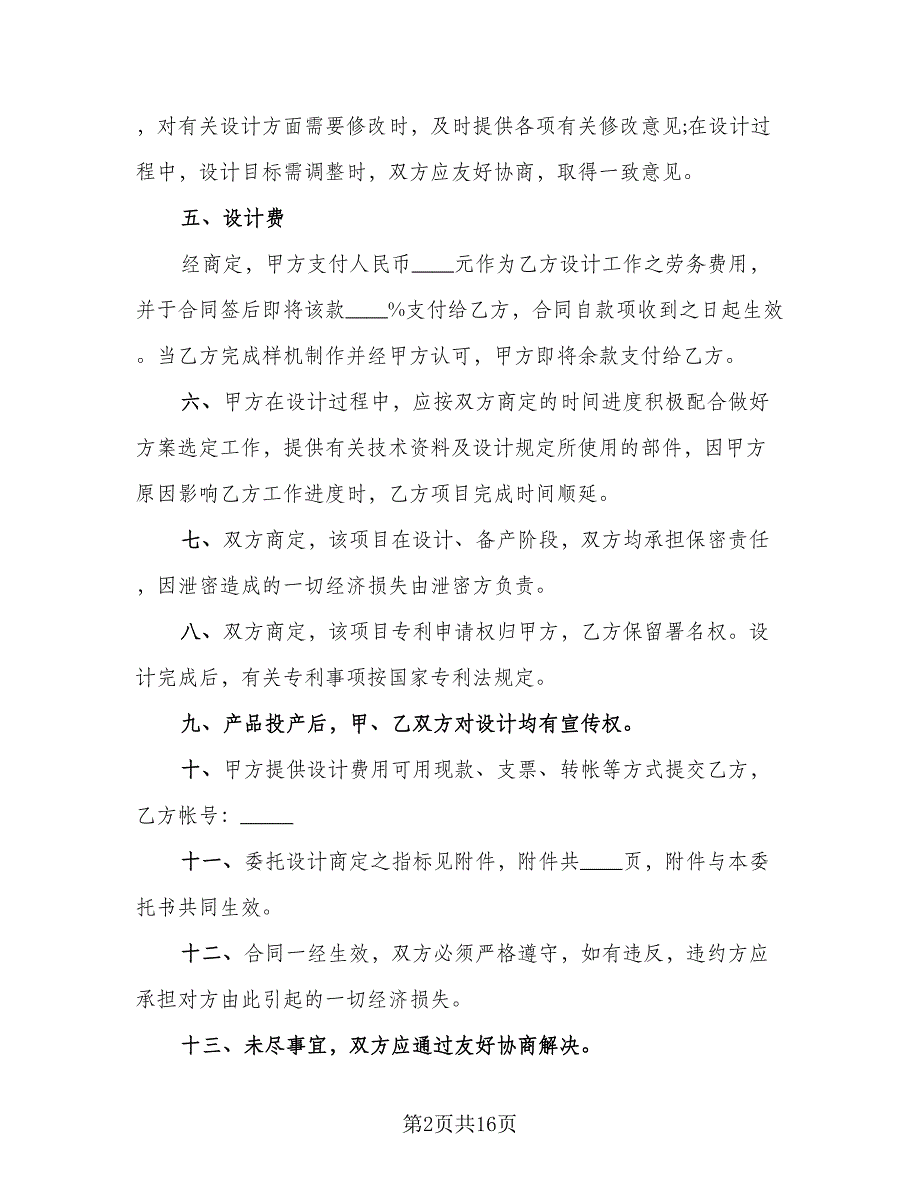 ，对有关设计方面需要修改时，及时提供各项有关修改意见;在设计过
程中，设计目标需调整时，双方应友好协商，取得一致意见。
五、设计费
经商定，甲方支付人民币____元作为乙方设计工作之劳务费用，
并于合同签后即将该款____%支付给乙方，合同自款项收到之日起生效
。当乙方完成样机制作并经甲方认可，甲方即将余款支付给乙方。
六、甲方在设计过程中，应按双方商定的时间进度积极配合做好
方案选定工作，提供有关技术资料及设计规定所使用的部件，因甲方
原因影响乙方工作进度时，乙方项目完成时间顺延。
七、双方商定，该项目在设计、备产阶段，双方均承担保密责任
，因泄密造成的一切经济损失由泄密方负责。
八、双方商定，该项目专利申请权归甲方，乙方保留署名权。设
计完成后，有关专利事项按国家专利法规定。
九、产品投产后，甲、乙双方对设计均有宣传权。
十、甲方提供设计费用可用现款、支票、转帐等方式提交乙方，
乙方帐号：_____
十一、委托设计商定之指标见附件，附件共____页，附件与本委
托书共同生效。
十二、合同一经生效，双方必须严格遵守，如有违反，违约方应
承担对方由此引起的一切经济损失。
十三、未尽事宜，双方应通过友好协商解决。
第2页共16页